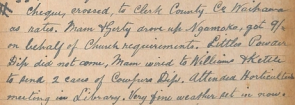 cheque, crossed, to Clerk County Co Waipawa
as rates. Mam & Gerty drove up Ngamoko, got 9/-
on behalf of Church requirements. Littles Powder
Dip did not come, Mam wired to Williams & Kettle
to send 2 cases of Coopers Dip, Attended Horticultural
meeting in Library. Very fine weather set in now.